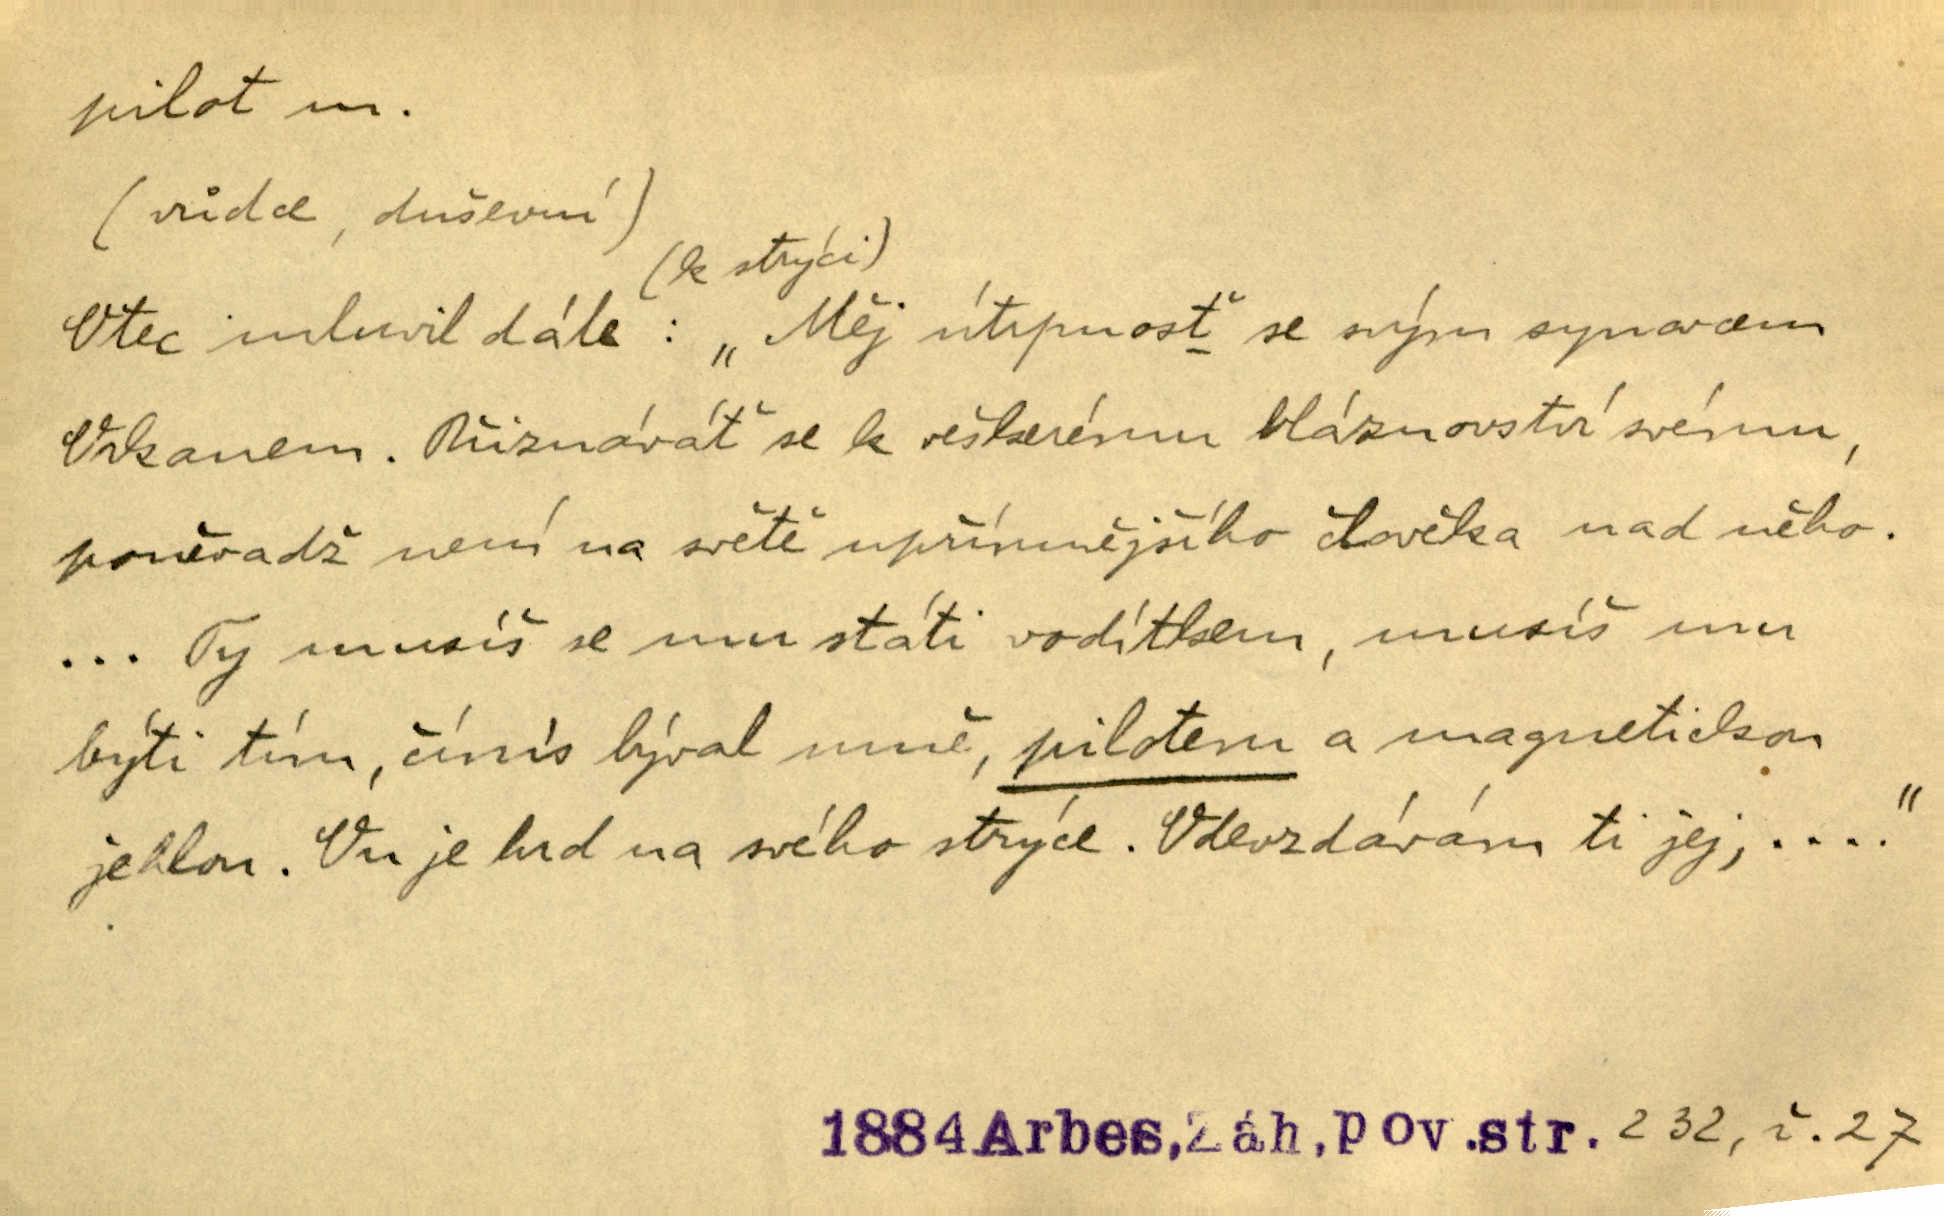 pilot m.
(vůdce, duševní)
(k strýci)
Otec mluvil dále : „Měj útrpnosť se svým synovcem
Vlkanem. Přiznáváť se k veškerému bláznovství svému,
poněvadž není na světě upřímnějšího člověka nad něho.
... Ty musíš se mu státi vodítkem, musíš mu
býti tím, čímis býval mně, pilotem a magnetickou
jehlou. On je hrd na svého strýce. Odevzdávám ti jej, ...."
1884 Arbes, Záh, pov. str. 232, ř. 27